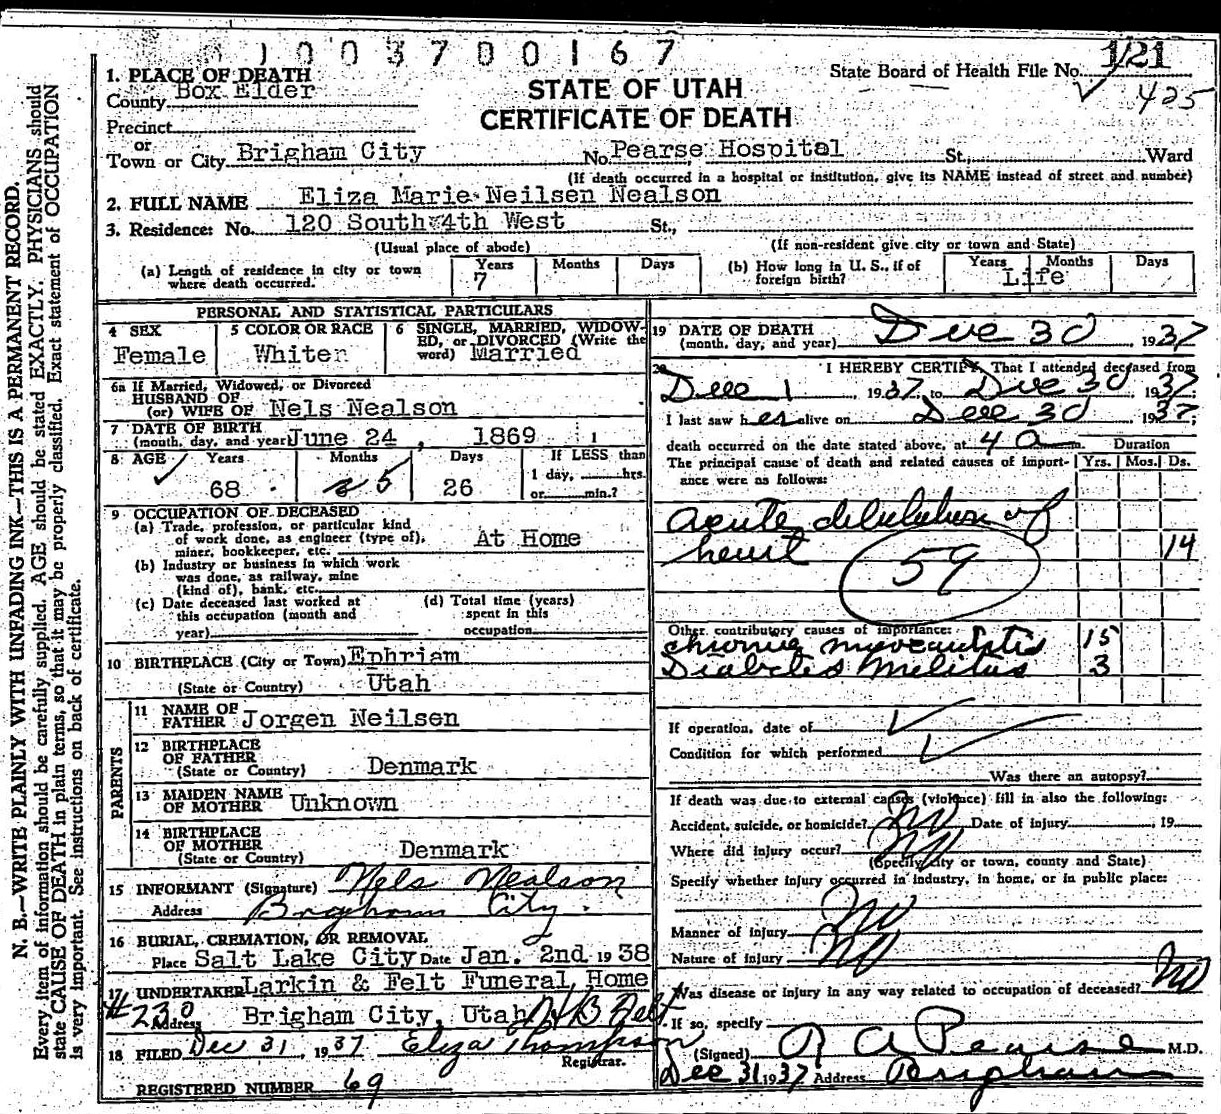 0 1 0 0 3 7 0 0 1 6 7
1. PLACE OF DEATH
County Box Elder
STATE OF UTAH
CERTIFICATE OF DEATH
State Board of Health File No. 1/21
425
Precinct
or
Town or City Brigham City No. Pearse Hospital St., Ward
(If death occurred in a hospital or institution, give its NAME instead of street and number)
2. FULL NAME Eliza Marie Neilsen Nealson
3. Residence: No. 120 South 4th West St.,
(Usual place of abode) (If non-resident give city or town and State)
(a) Length of residence in city or town where death occurred. Years 7 Months Days
(b) How long in U. S., if of foreign birth? Years Months Days Life
PERSONAL AND STATISTICAL PARTICULARS
4 SEX Female
5 COLOR OR RACE White
6 SINGLE, MARRIED, WIDOWED, or DIVORCED (Write the word) Married
6a If Married, Widowed, or Divorced
HUSBAND OF
(or) WIFE OF Nels Nealson
7 DATE OF BIRTH
(month, day, and year) June 24, 1869
8 AGE Years 68 Months 5 Days 26
If LESS than
1 day, hrs.
or min.?
9 OCCUPATION OF DECEASED
(a) Trade, profession, or particular kind
of work done, as engineer (type of),
miner, bookkeeper, etc. At Home
(b) Industry or business in which work
was done, as railway, mine
(kind of), bank, etc.
(c) Date deceased last worked at
this occupation (month and
year)
(d) Total time (years)
spent in this
occupation
10 BIRTHPLACE (City or Town) Ephriam
(State or Country) Utah
PARENTS
11 NAME OF
FATHER Jorgen Neilsen
12 BIRTHPLACE
OF FATHER
(State or Country) Denmark
13 MAIDEN NAME
OF MOTHER Unknown
14 BIRTHPLACE
OF MOTHER
(State or Country) Denmark
15 INFORMANT (Signature) Nels Nealson
Address Brigham City.
16 BURIAL, CREMATION, OR REMOVAL
Place Salt Lake City Date Jan. 2nd. 1938
17 UNDERTAKER Larkin & Felt Funeral Home
#230
Address Brigham City, Utah H B Felt
18 FILED Dec 31, 1937 Eliza Thompson
Registrar.
REGISTERED NUMBER 69
19 DATE OF DEATH
(month, day, and year) Dec 30, 1937
20 I HEREBY CERTIFY, That I attended deceased from
Dec 1, 1937, to Dec 30 1937
I last saw her alive on Dec 30 1937;
death occurred on the date stated above, at 4 a m. Duration
The principal cause of death and related causes of importance were as follows: Yrs. Mos. Ds.
Acute dilatation of
heart 14
59
Other contributory causes of importance:
Chronic myocarditis 15
Diabetes Melitus 3
If operation, date of
Condition for which performed
Was there an autopsy?
If death was due to external causes (violence) fill in also the following:
Accident, suicide, or homicide? No Date of injury , 19
Where did injury occur? No
(Specify city or town, county and State)
Specify whether injury occurred in industry, in home, or in public place:
Manner of injury No
Nature of injury No
Was disease or injury in any way related to occupation of deceased? No
If so, specify
(Signed) R A Pearse M.D.
Dec 31 1937 Address Brigham
N. B.—WRITE PLAINLY WITH UNFADING INK—THIS IS A PERMANENT RECORD.
Every item of information should be carefully supplied. AGE should be stated EXACTLY. PHYSICIANS should
state CAUSE OF DEATH in plain terms, so that it may be properly classified. Exact statement of OCCUPATION
is very important. See instructions on back of certificate.